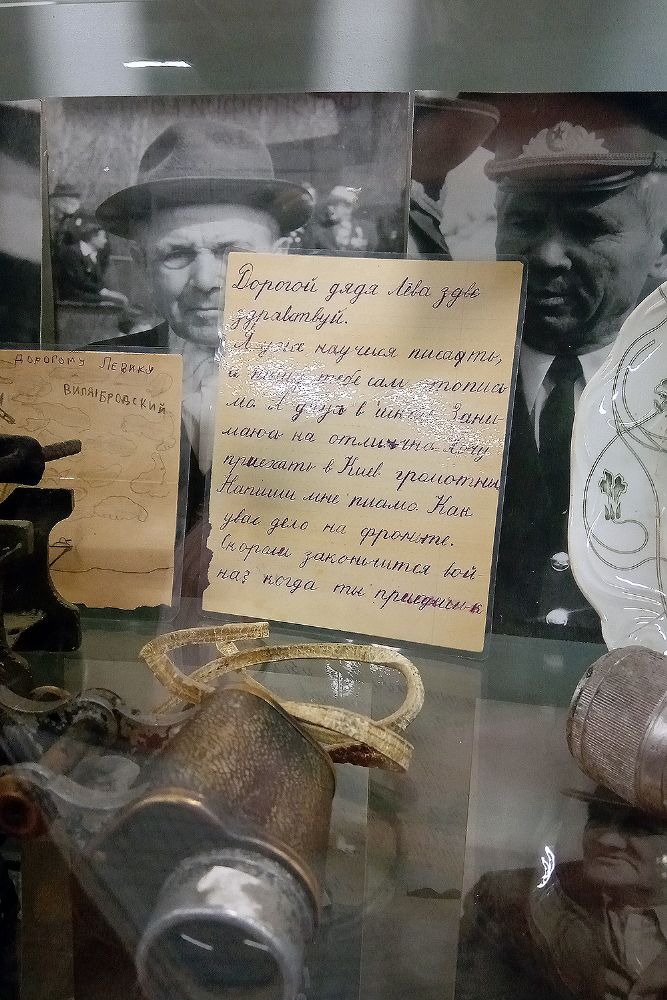 Дорогой дядя Лёва здво
здравствуй.
Я уже научился писать,
и пишу тебе сам это пись
мо. Я учусь в школе. Зани
маюсь на отлично хочу
приехать в Киев грамотны
Напиши мне писмо. Как
увас дело на фронте.
Скороли закончится вой-
на? когда ты приедиш к
ДОРОГОМУ ЛЕВИКУ
ВИЛЯ БРОДСКИЙ